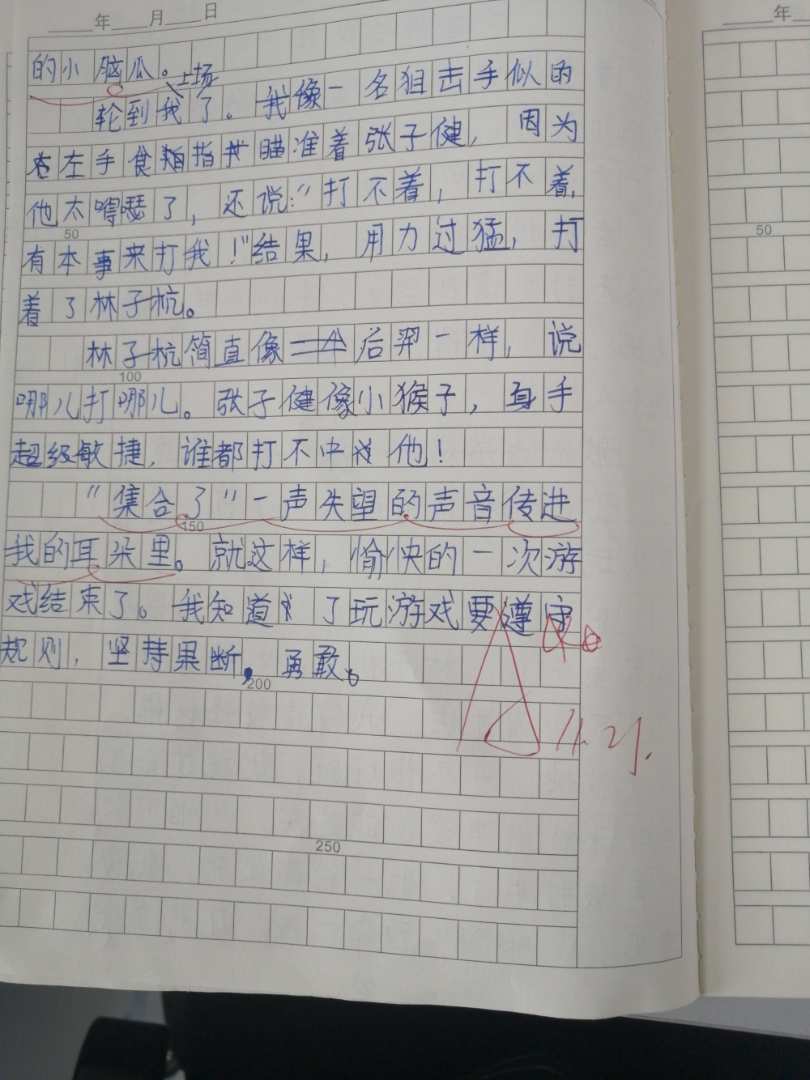 年 月 日
年
的小脑瓜。
上场
轮到我了。我像一名狙击手似的
左手食指瞄准着张子健，因为
他太嘚瑟了，还说："打不着，打不着，
50
有本事来打我！"结果，用力过猛，打
着了林子杭。
林子杭简直像后羿一样，说
100
哪儿打哪儿。张子健像小猴子，身手
超级敏捷，谁都打不中他！
"集合了"一声失望的声音传进
150
我的耳朵里。就这样，愉快的一次游
戏结束了。我知道了玩游戏要遵守
规则，坚持果断，勇敢。
200
A
11.21.
250
50